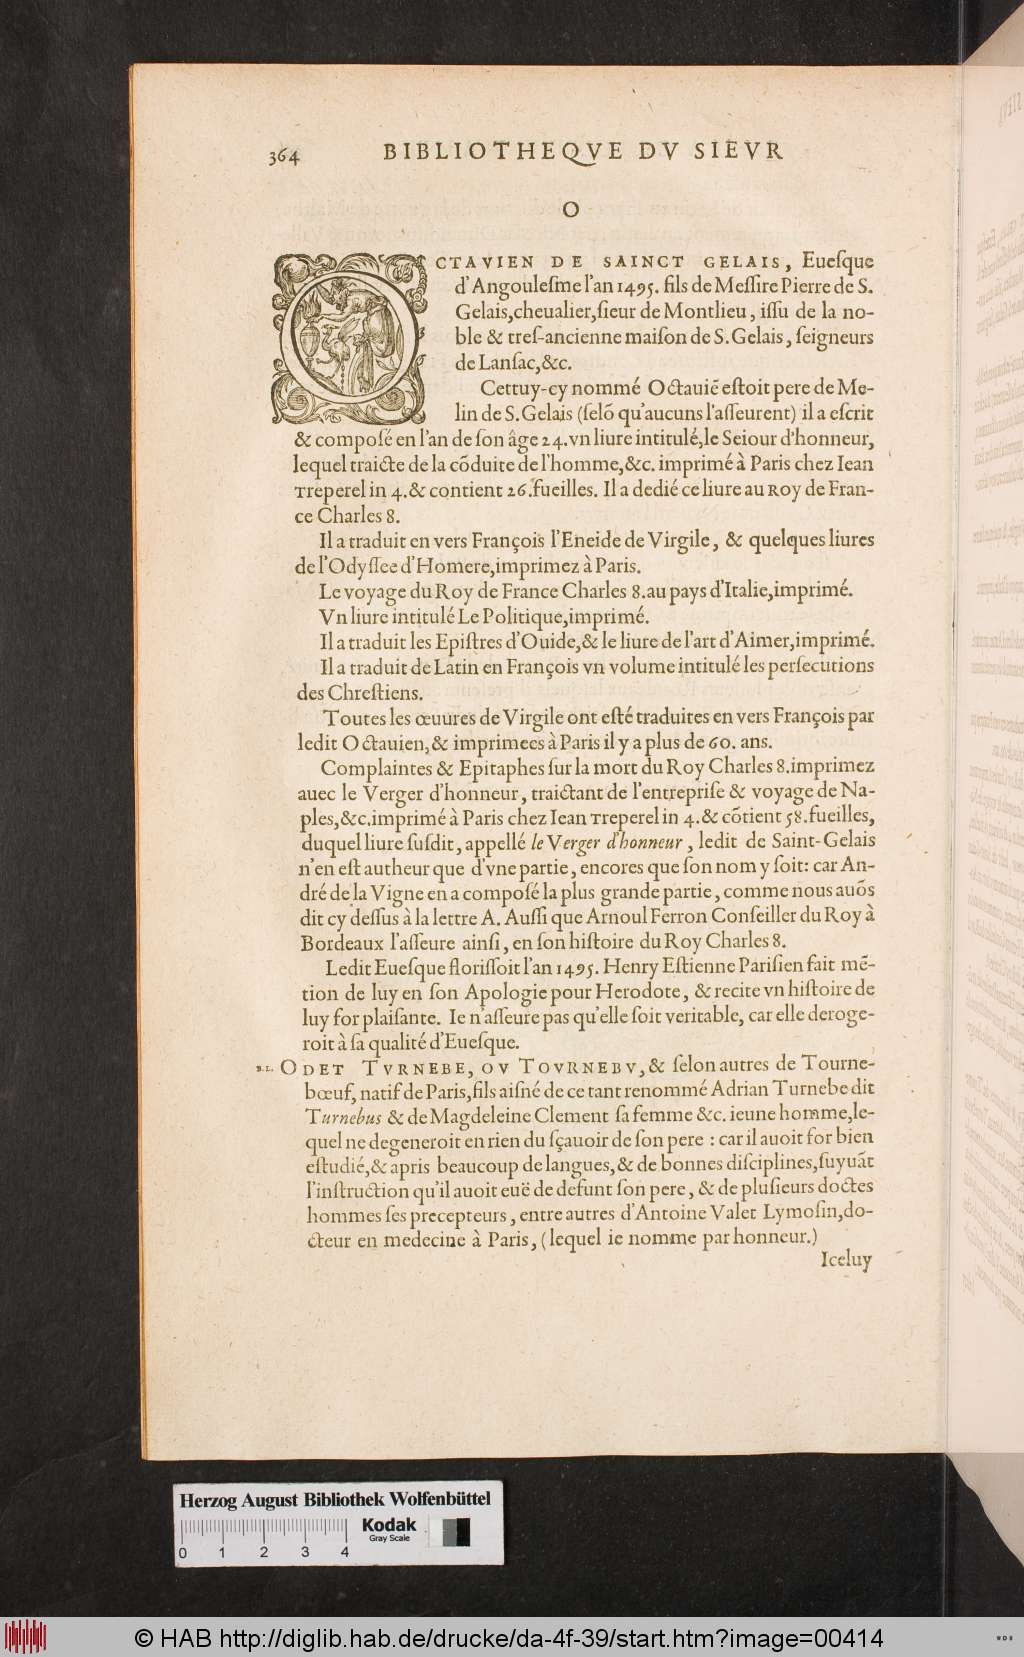 364 BIBLIOTHEQVE DV SIEVR
O
OCTAVIEN DE SAINCT GELAIS, Eueſque
d'Angouleſme l'an 1495. fils de Meſſire Pierre de S.
Gelais, cheualier, ſieur de Montlieu, iſſu de la no-
ble & treſ-ancienne maiſon de S. Gelais, ſeigneurs
de Lanſac, &c.
Cettuy-cy nommé Octauiẽ eſtoit pere de Me-
lin de S. Gelais (ſelõ qu'aucuns l'aſſeurent) il a eſcrit
& compoſé en l'an de ſon âge 24. vn liure intitulé, le Seiour d'honneur,
lequel traicte de la cõduite de l'homme, &c. imprimé à Paris chez Iean
Treperel in 4. & contient 26. fueilles. Il a dedié ce liure au Roy de Fran-
ce Charles 8.
Il a traduit en vers François l'Eneide de Virgile, & quelques liures
de l'Odyſſee d'Homere, imprimez à Paris.
Le voyage du Roy de France Charles 8. au pays d'Italie, imprimé.
Vn liure intitulé Le Politique, imprimé.
Il a traduit les Epiſtres d'Ouide, & le liure de l'art d'Aimer, imprimé.
Il a traduit de Latin en François vn volume intitulé les perſecutions
des Chreſtiens.
Toutes les œuures de Virgile ont eſté traduites en vers François par
ledit Octauien, & imprimees à Paris il y a plus de 60. ans.
Complaintes & Epitaphes ſur la mort du Roy Charles 8. imprimez
auec le Verger d'honneur, traictant de l'entrepriſe & voyage de Na-
ples, &c. imprimé à Paris chez Iean Treperel in 4. & cõtient 58. fueilles,
duquel liure ſuſdit, appellé le Verger d'honneur, ledit de Saint-Gelais
n'en eſt autheur que d'vne partie, encores que ſon nom y ſoit: car An-
dré de la Vigne en a compoſé la plus grande partie, comme nous auõs
dit cy deſſus à la lettre A. Auſſi que Arnoul Ferron Conſeiller du Roy à
Bordeaux l'aſſeure ainſi, en ſon hiſtoire du Roy Charles 8.
Ledit Eueſque floriſſoit l'an 1495. Henry Eſtienne Pariſien fait mẽ-
tion de luy en ſon Apologie pour Herodote, & recite vn hiſtoire de
luy for plaiſante. Ie n'aſſeure pas qu'elle ſoit veritable, car elle deroge-
roit à ſa qualité d'Eueſque.
B.L. ODET TVRNEBE, OV TOVRNEBV, & ſelon autres de Tourne-
bœuf, natif de Paris, fils aiſné de ce tant renommé Adrian Turnebe dit
Turnebus & de Magdeleine Clement ſa femme &c. ieune homme, le-
quel ne degeneroit en rien du ſçauoir de ſon pere : car il auoit for bien
eſtudié, & apris beaucoup de langues, & de bonnes diſciplines, ſuyuãt
l'inſtruction qu'il auoit euë de defunt ſon pere, & de pluſieurs doctes
hommes ſes precepteurs, entre autres d'Antoine Valet Lymoſin, do-
cteur en medecine à Paris, (lequel ie nomme par honneur.)
Iceluy
Herzog August Bibliothek Wolfenbüttel
Kodak
Gray Scale
0 1 2 3 4
© HAB http://diglib.hab.de/drucke/da-4f-39/start.htm?image=00414